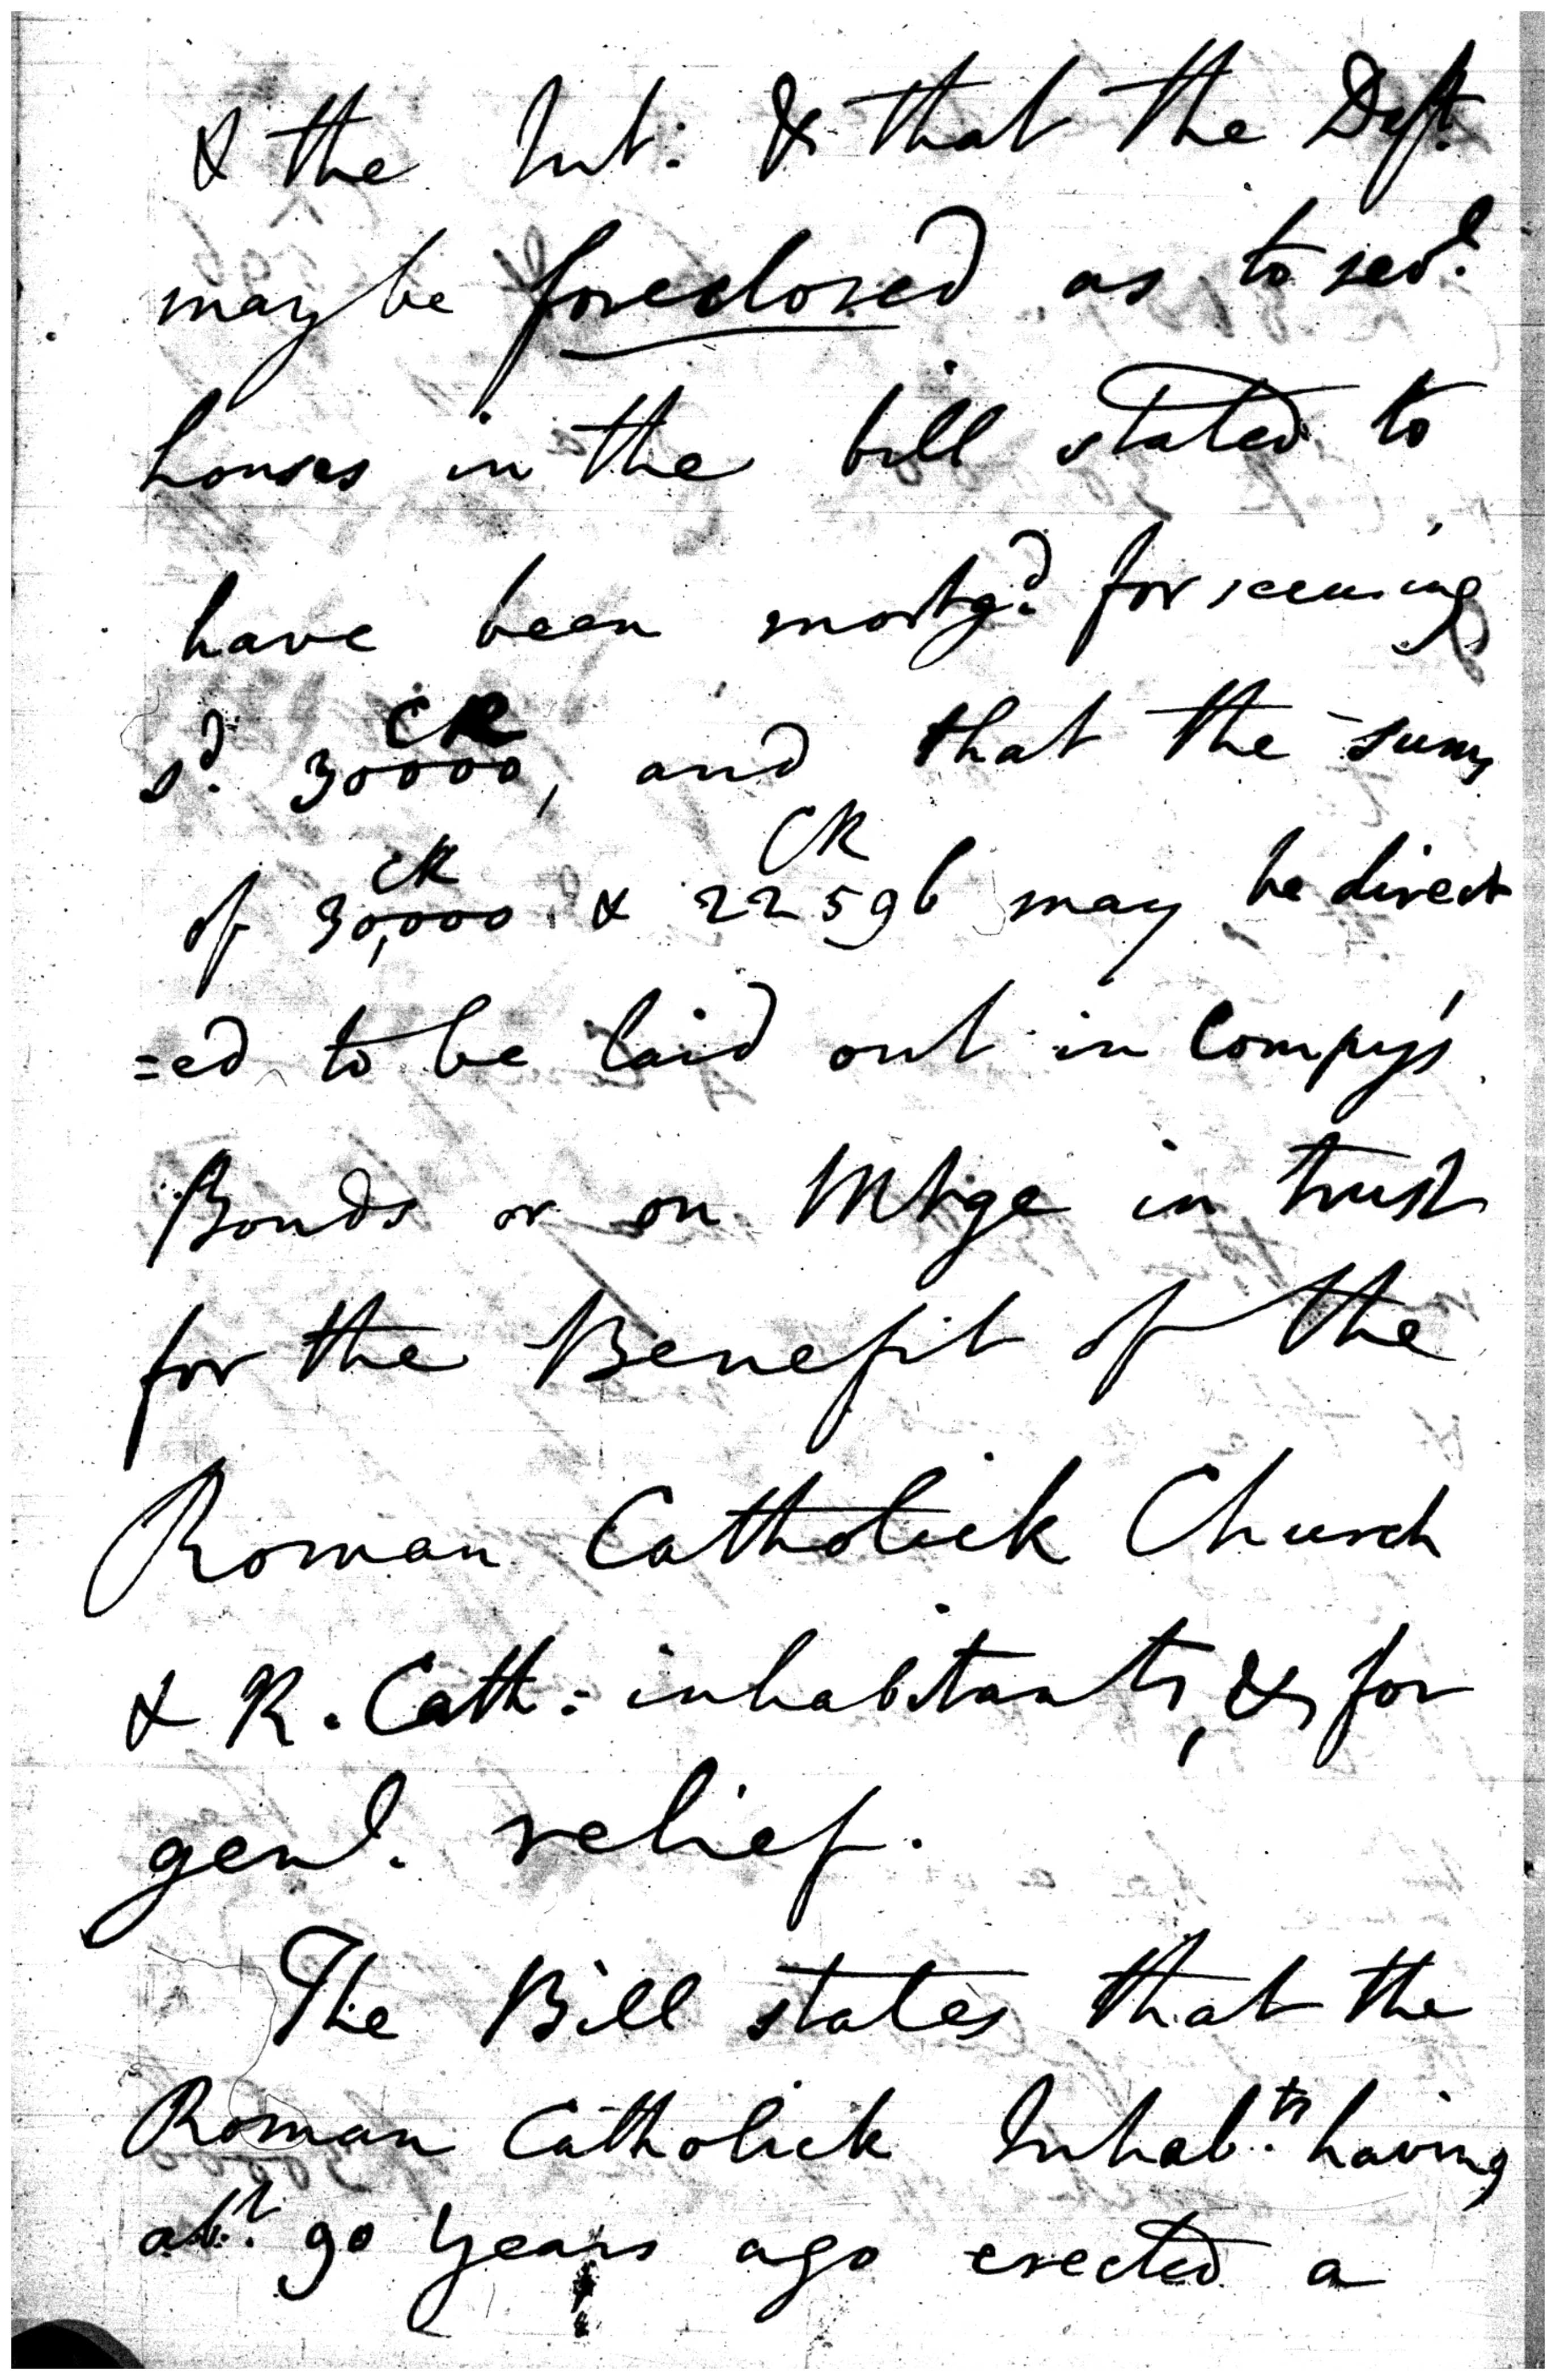 & the Int: & that the Deft.
may be foreclosed as to sevl.
houses in the bill stated to
have been mortgd. for securing
sd. 30000, CR and that the sums
of 30,000 CR & 22596 CR may be direct
=ed to be laid out in Compy's
Bonds or on Mtge in trust
for the Benefit of the
Roman Catholick Church
& R. Cath: inhabitants, & for
genl. relief.
The Bill states that the
Roman Catholick Inhabts. having
abt. 90 years ago erected a